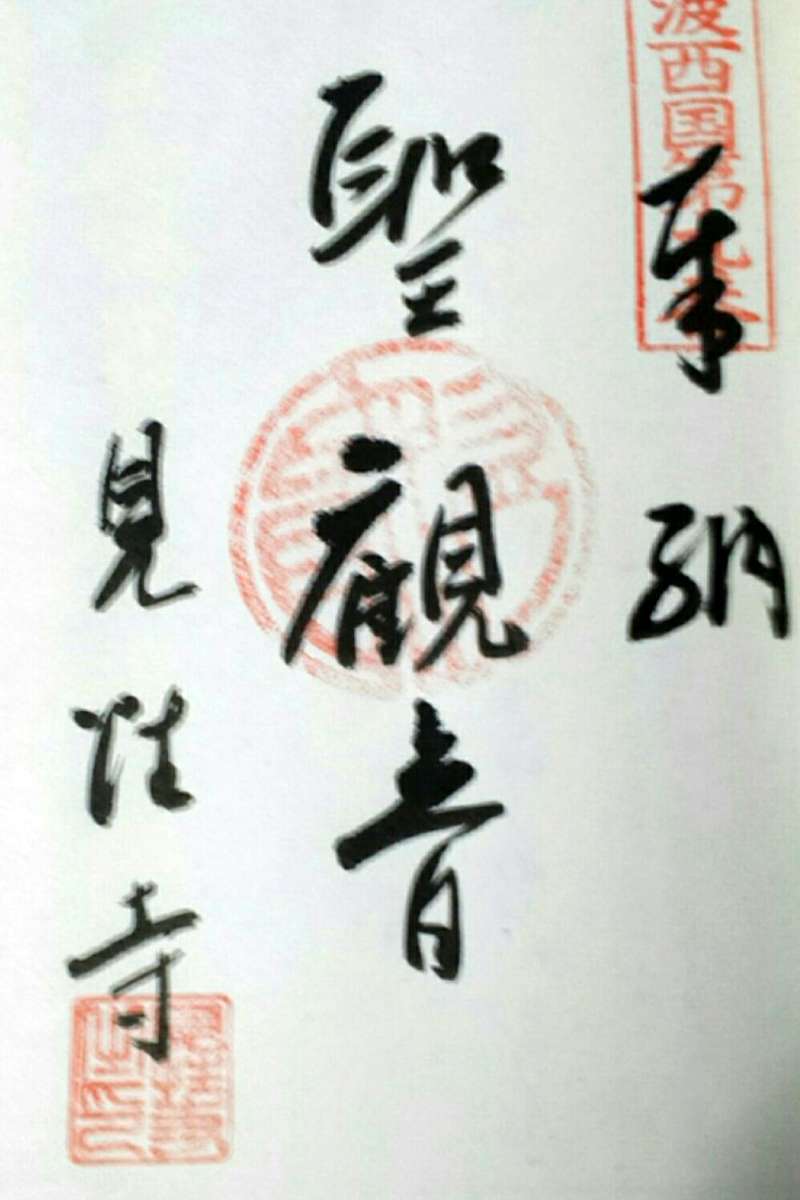 波西国第九番
奉納
聖観音
見性寺